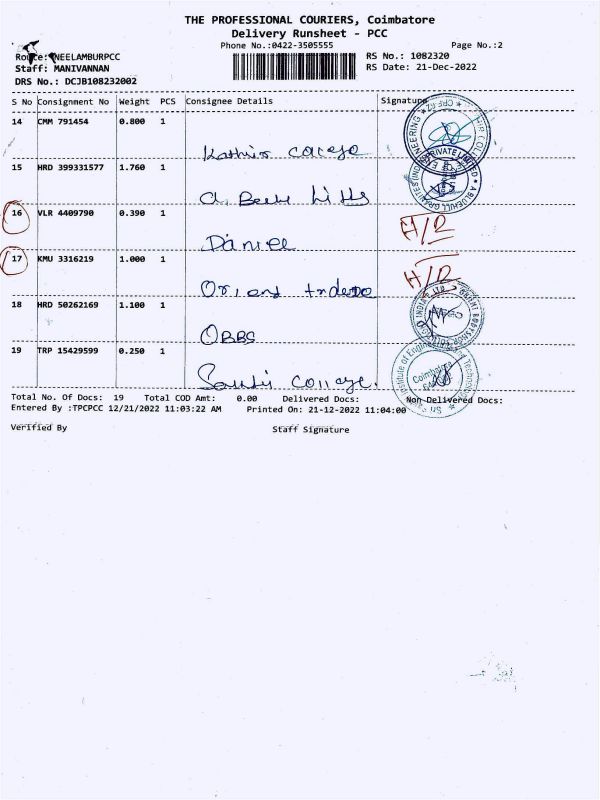 THE PROFESSIONAL COURIERS, Coimbatore
Delivery Runsheet - PCC
Phone No.:0422-3505555 Page No.:2
Route: NEELAMBURPCC RS No.: 1082320
Staff: MANIVANNAN RS Date: 21-Dec-2022
DRS No.: DCJB108232002
S No Consignment No Weight PCS Consignee Details Signature
14 CMM 791454 0.800 1
Kathir college
15 HRD 399331577 1.760 1
Hills
16 VLR 4409790 0.390 1 H/R
Daniel
17 KMU 3316219 1.000 1 H/R
Orient
18 HRD 50262169 1.100 1
OBBS
19 TRP 15429599 0.250 1
College.
Coimbatore
Total No. Of Docs: 19 Total COD Amt: 0.00 Delivered Docs: Non Delivered Docs:
Entered By :TPCPCC 12/21/2022 11:03:22 AM Printed On: 21-12-2022 11:04:00
Verified By Staff Signature